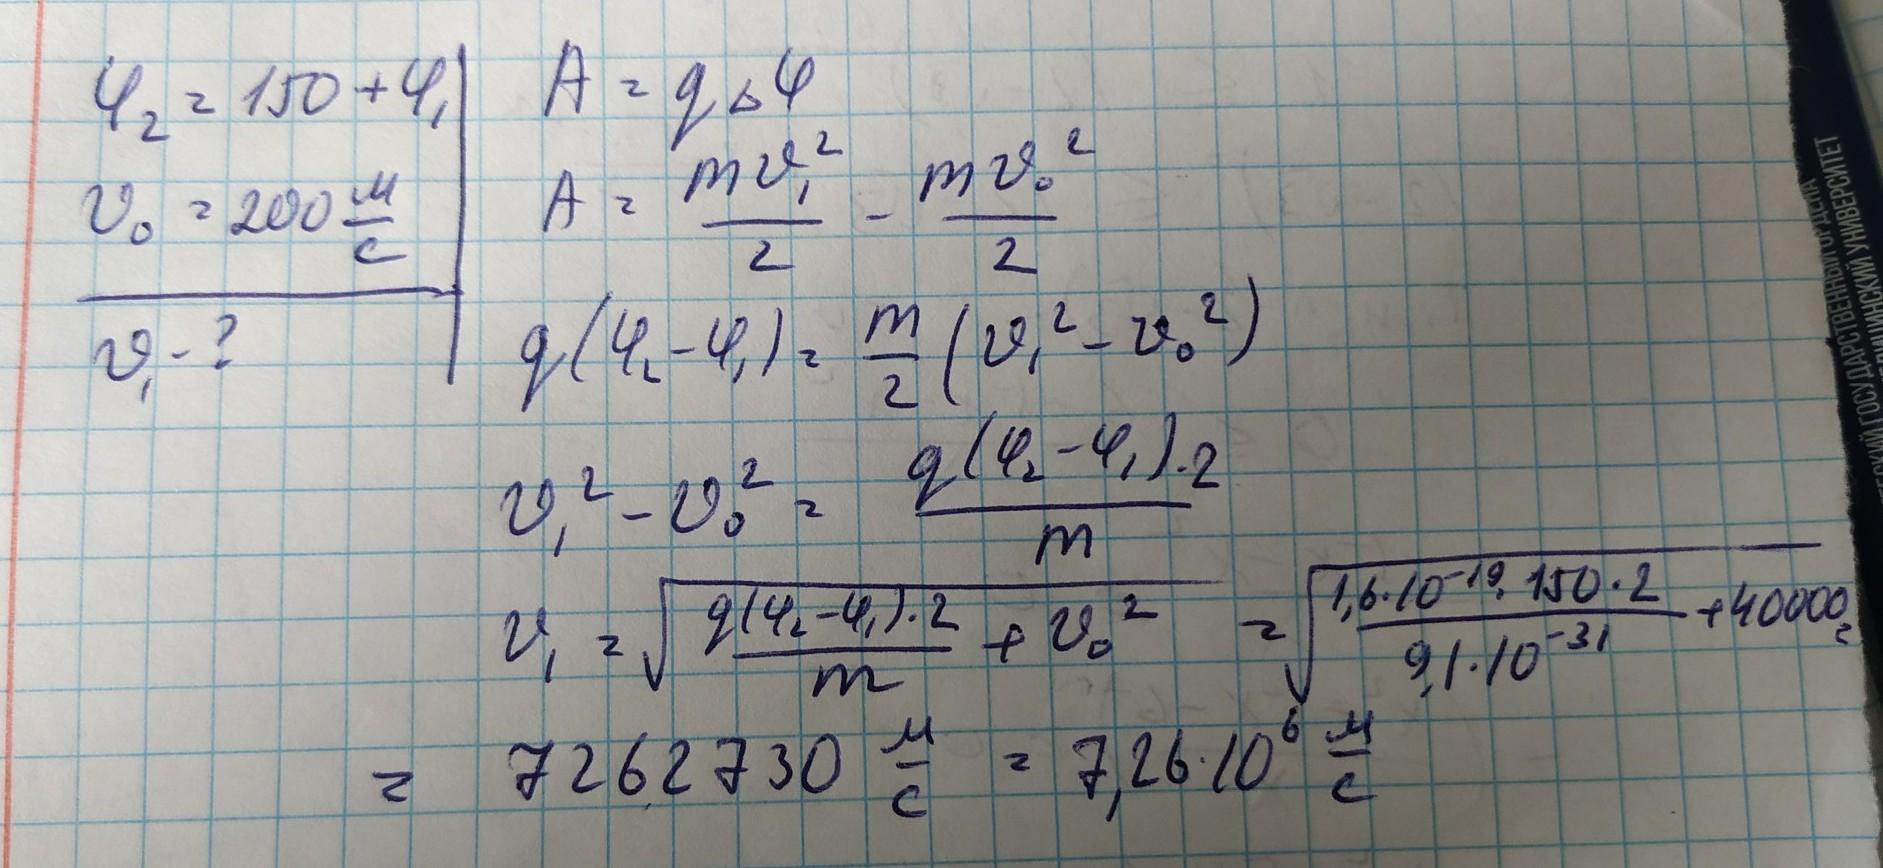 φ₂ = 150 + φ₁
υ₀ = 200 м/с
υ₁ - ?
A = qΔφ
A = mυ₁²/2 - mυ₀²/2
q(φ₂ - φ₁) = m/2 (υ₁² - υ₀²)
υ₁² - υ₀² = q(φ₂ - φ₁)·2/m
υ₁ = √(q(φ₂ - φ₁)·2/m + υ₀²) = √(1,6·10⁻¹⁹·150·2/9,1·10⁻³¹ + 40000) =
= 7262730 м/с = 7,26·10⁶ м/с
ГОСУДАРСТВЕННЫЙ ОРДЕНА
УНИВЕРСИТЕТ